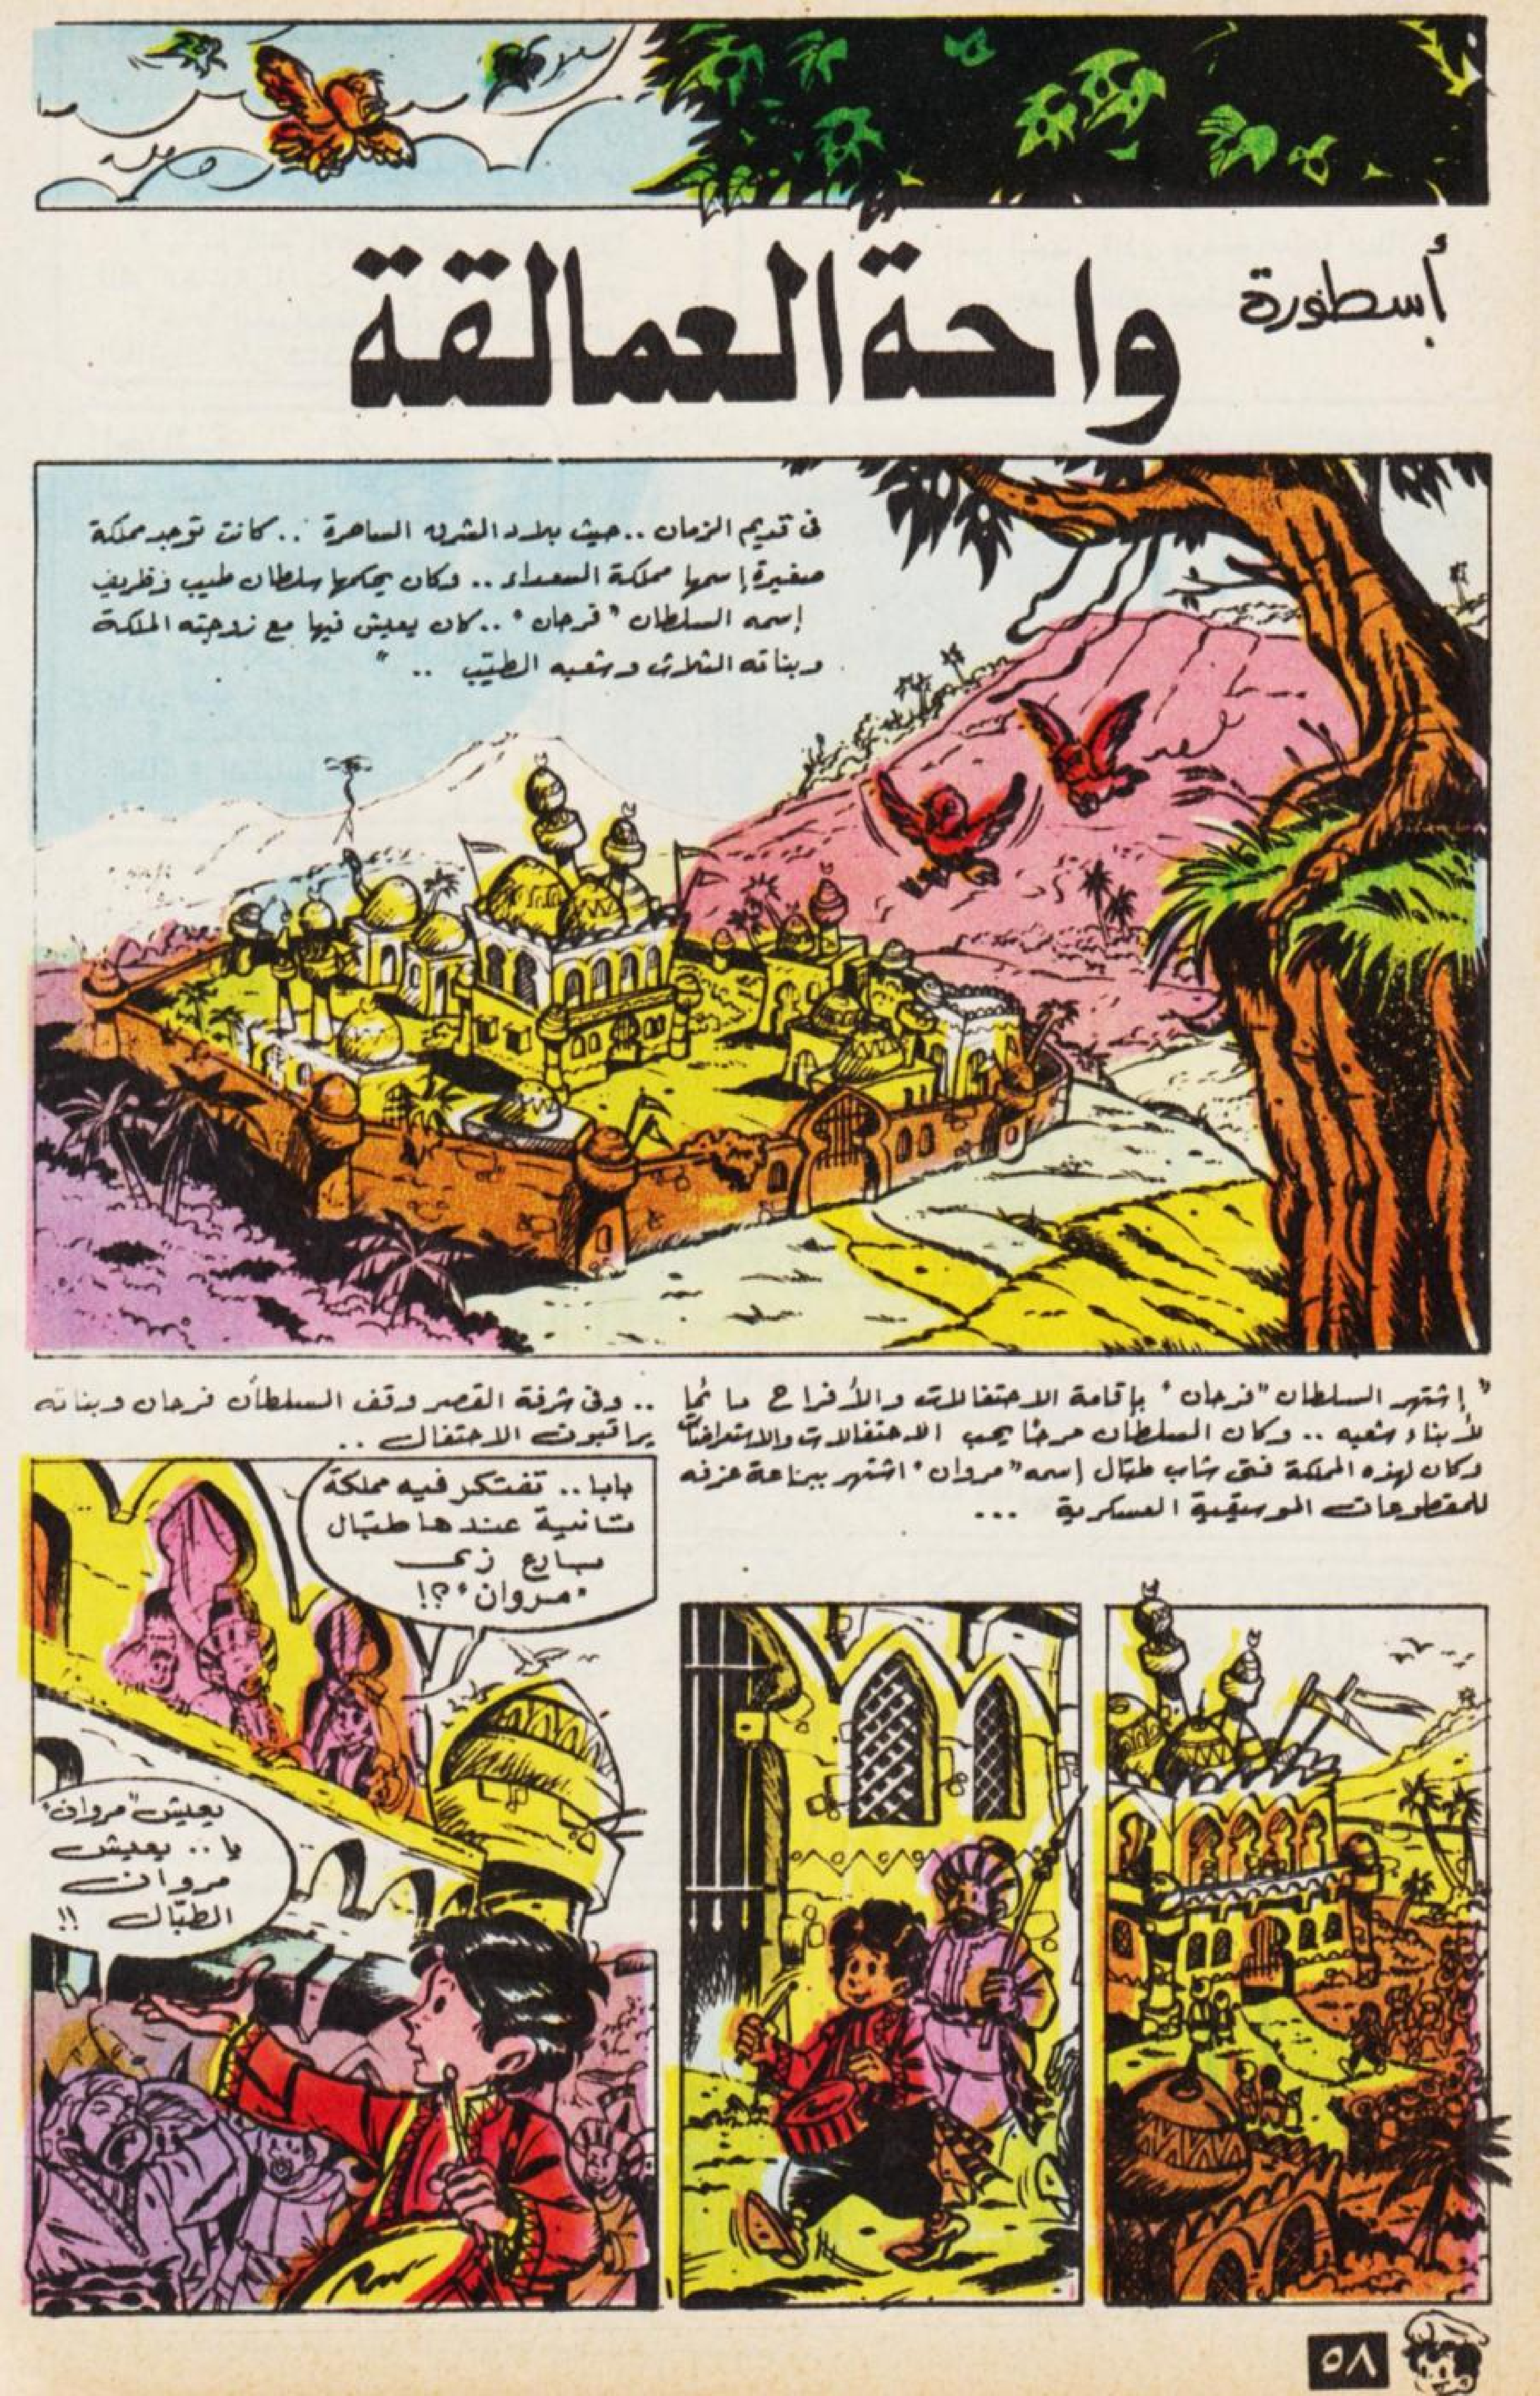 أسطورة
واحة العمالقة
فى قديم الزمان .. حيث بلاد الشرق الساحرة .. كانت توجد مملكة
صغيرة إسمها مملكة السعداء .. وكان يحكمها سلطان طيب وظريف
إسمه السلطان "فرحان" .. كان يعيش فيها مع زوجته الملكة
وبناته الثلاث وشعبه الطيّب .. "
" إشتهر السلطان "فرحان" بإقامة الاحتفالات والأفراح دائمًا
لأبناء شعبه .. وكان السلطان مرحًا يحب الاحتفالات والاستعراضات
وكان لهذه المملكة فتى شاب طبّال إسمه "مروان" اشتهر ببراعة عزفه
للمقطوعات الموسيقية العسكرية ...
.. وفى شرفة القصر وقف السلطان فرحان وبناته
يراقبون الاحتفال ..
بابا .. تفتكر فيه مملكة
تانية عندها طبّال
بارع زى
"مروان" ؟!
يعيش "مروان"
يا .. يعيش
مروان
الطبّال !!
٥٨